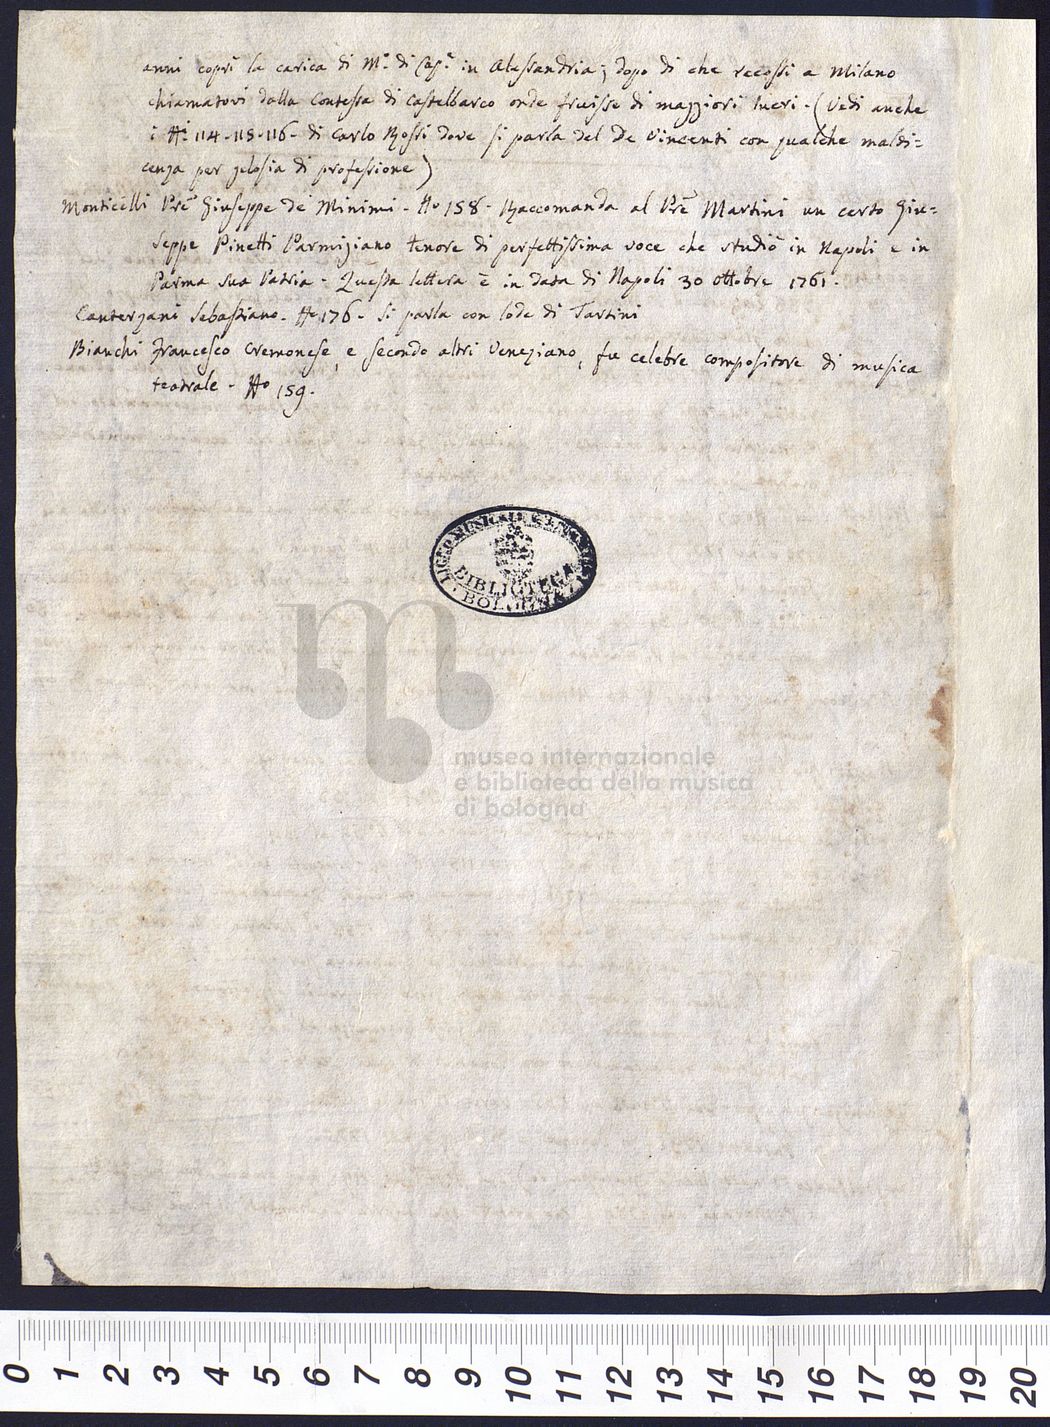 anni coprì la carica di M.º di Cap.ª in Alessandria; dopo di che recossi a Milano
chiamatovi dalla Contessa di Castelbarco onde fruisse di maggiori lucri - (Vedi anche
i Nⁱ 114-115-116- di Carlo Rossi dove si parla del De Vincenti con qualche maldi=
cenza per gelosia di professione)
Monticelli Pre Giuseppe de' Minimi - Nº 158 - Raccomanda al Pre Martini un certo Giu=
seppe Pinetti Parmigiano tenore di perfettissima voce che studiò in Napoli e in
Parma sua Patria - Questa lettera è in data di Napoli 30 ottobre 1761.
Canterzani Sebastiano. Nº 176 - Si parla con lode di Tartini
Bianchi Francesco Cremonese, e secondo altri Veneziano, fu celebre compositore di musica
teatrale - Nº 159.
LICEO MUSICALE
BIBLIOTECA
BOLOGNA
museo internazionale
e biblioteca della musica
di bologna
0 1 2 3 4 5 6 7 8 9 10 11 12 13 14 15 16 17 18 19 20